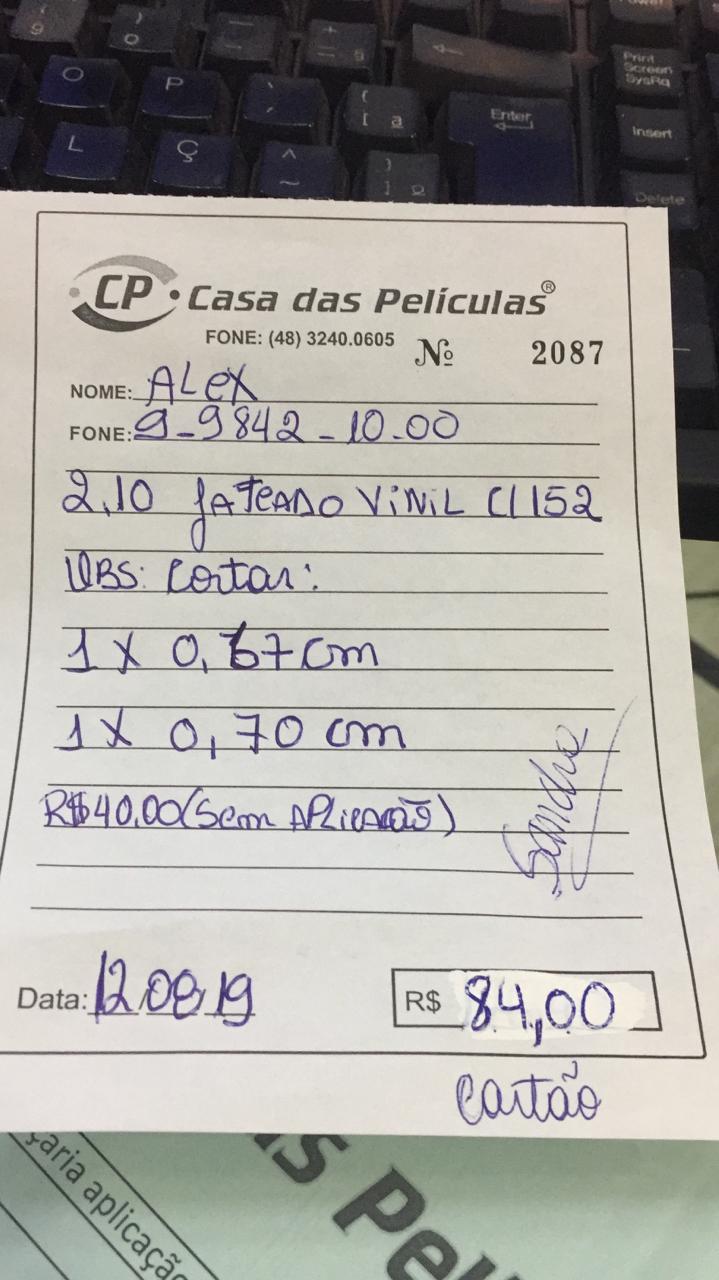 9
O
P
L
Ç
^
~
{
[ ª
}
] º
Enter
Print
Screen
SysRq
Insert
Delete
CP • Casa das Películas®
FONE: (48) 3240.0605 Nº 2087
NOME: ALEX
FONE: 9-9842-10.00
2,10 JATEADO VINIL CI152
OBS: Cortar:
1 X 0,67 cm
1 X 0,70 cm
R$40,00 (Sem APLICAÇÃO)
Sandro
Data: 12.08.19 R$ 84,00
cartão
çaria aplicação
as Pel